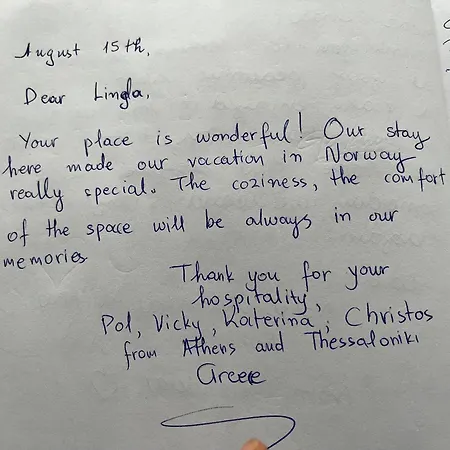 August 15th,
Dear Lingla,
Your place is wonderful! Our stay
here made our vacation in Norway
really special. The coziness, the comfort
of the space will be always in our
memories
Thank you for your
hospitality,
Pol, Vicky, Katerina, Christos
from Athens and Thessaloniki
Greece